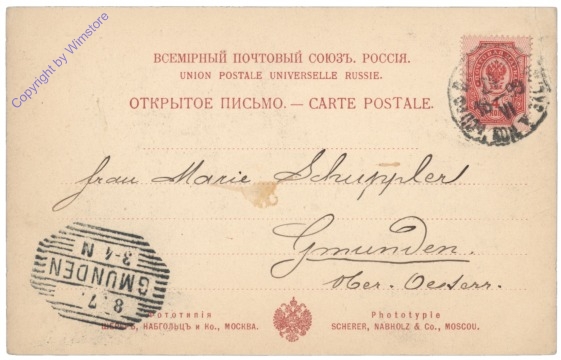 Copyright by Wimstore
ВСЕМІРНЫЙ ПОЧТОВЫЙ СОЮЗЪ. РОССІЯ.
UNION POSTALE UNIVERSELLE RUSSIE.
ОТКРЫТОЕ ПИСЬМО. — CARTE POSTALE.
Frau Marie Schuppler
Gmunden.
Ober. Oesterr.
GMUNDEN
8.7.
3-4 N
Фототипія
НАБГОЛЬЦЪ и Ко., МОСКВА.
Phototypie
SCHERER, NABHOLZ & Co., MOSCOU.